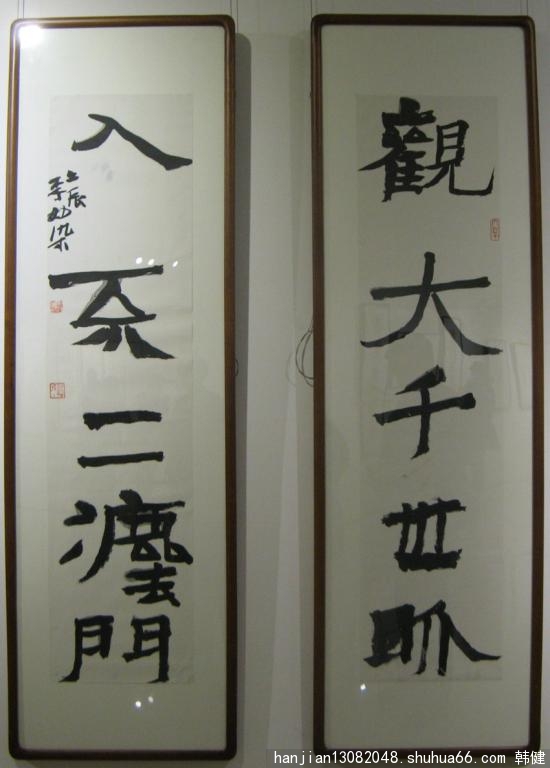 觀大千世畍
入不二灋門
壬辰
hanjian13082048.shuhua66.com 韩健